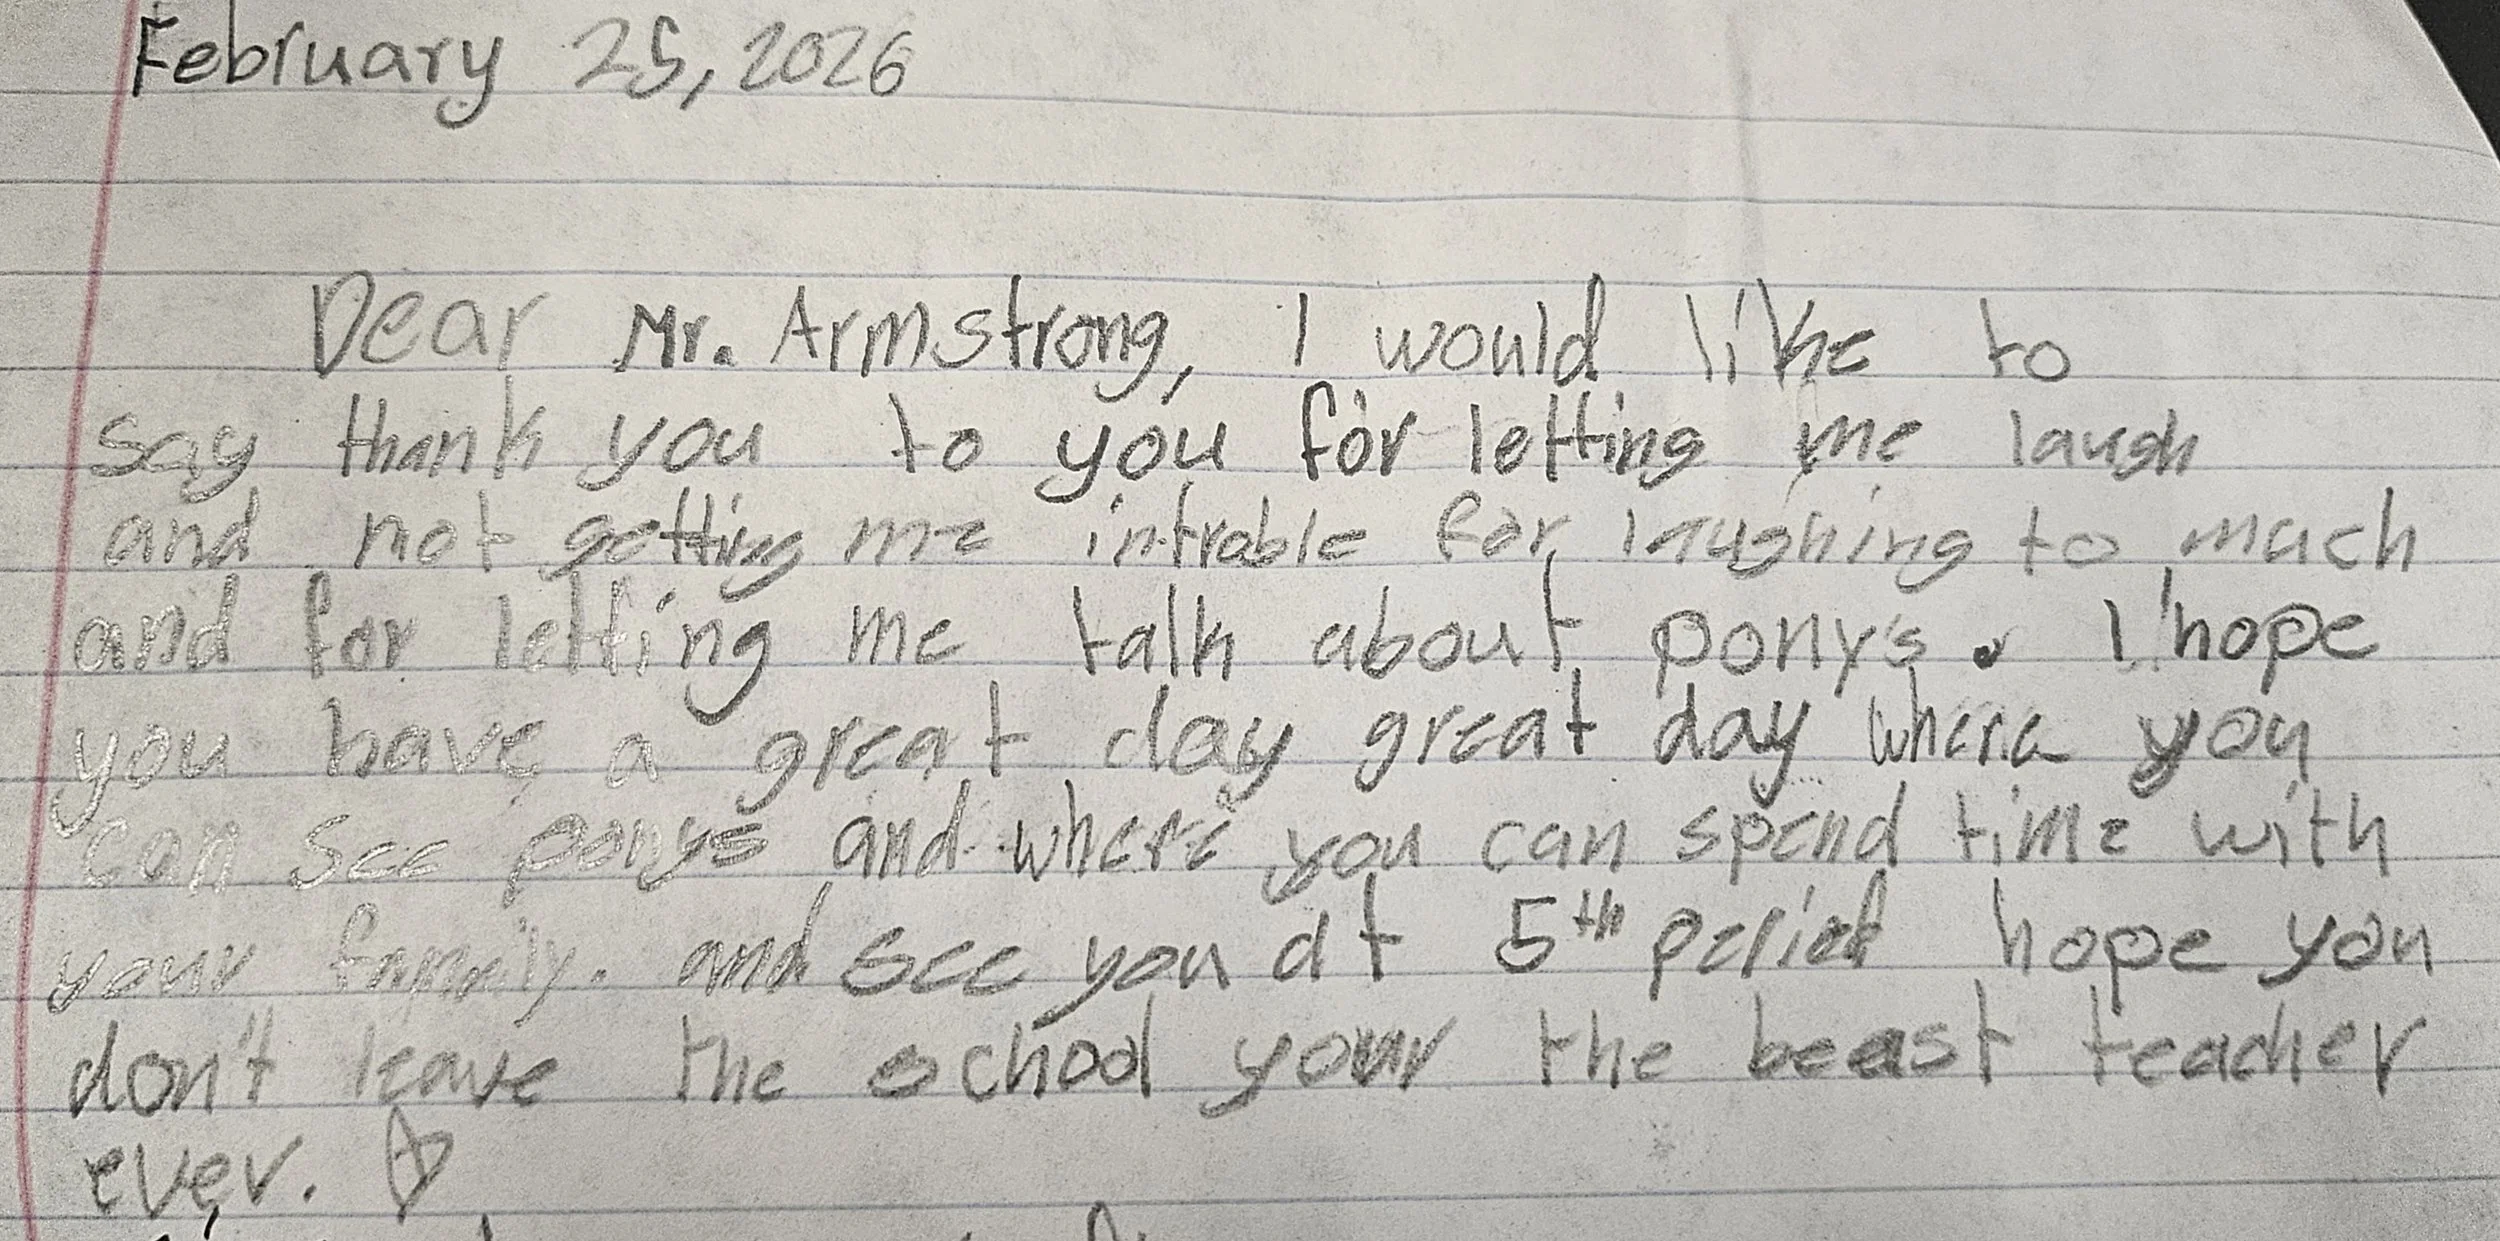 February 25, 2026
Dear Mr. Armstrong, I would like to
say thank you to you for letting me laugh
and not getting me intrable for laughing to much
and for letting me talk about pony's. I hope
you have a great day great day where you
can see ponys and where you can spend time with
your family. and see you at 5th period hope you
don't leave the school your the beast teacher
ever.